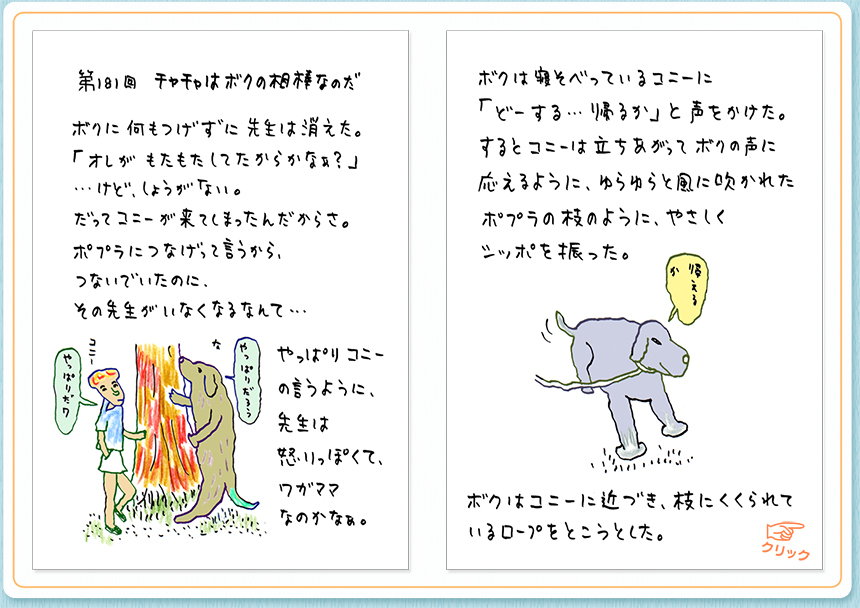 第181回 チャチャはボクの相棒なのだ
ボクに何もつげずに先生は消えた。
「オレがもたもたしてたからかなぁ?」
…けど、しょうがない。
だってコニーが来てしまったんだからさ。
ポプラにつなげって言うから、
つないでいたのに、
その先生がいなくなるなんて…
コニー
やっぱりだワ
な
やっぱりだろう
やっぱりコニー
の言うように、
先生は
怒りっぽくて、
ワガママ
なのかなぁ。
ボクは寝そべっているコニーに
「どーする…帰るか」と声をかけた。
するとコニーは立ちあがってボクの声に
応えるように、ゆらゆらと風に吹かれた
ポプラの枝のように、やさしく
シッポを振った。
帰える
か
ボクはコニーに近づき、枝にくくられて
いるロープをとこうとした。
クリック